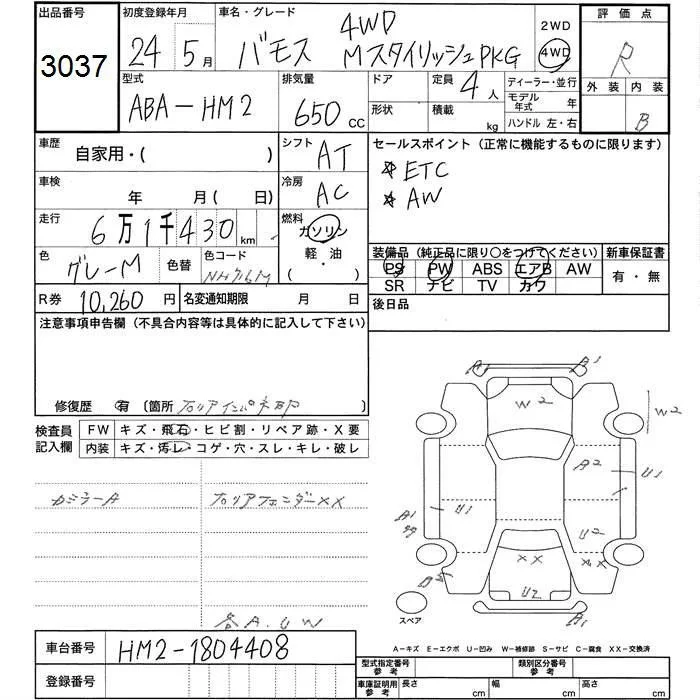 出品番号 初度登録年月 車名・グレード 評価点
3037
24年5月 バモス 4WD Mスタイリッシュ PKG
2WD
4WD
R
外装 内装
B
型式 排気量 ドア 定員 4人 ディーラー・並行
ABA-HM2 650 CC
形状 積載 kg
モデル年式 年
ハンドル 左・右
車歴 自家用・( )
シフト AT
セールスポイント (正常に機能するものに限ります)
☆ ETC
☆ AW
車検 年 月 (日)
冷房 AC
走行 6万1千430km
燃料 ガソリン
軽・油
( ・ )
色 グレーM 色替 色コード NH716M
装備品 (純正品に限り○をつけてください) 新車保証書
PS PW ABS エアB AW
SR ナビ TV カワ
有・無
R券 10,260円 名変通知期限 月 日
後日品
注意事項申告欄 (不具合内容等は具体的に記入して下さい)
修復歴 有 〔箇所 右リアインパネ部 〕
検査員記入欄
FW キズ・飛石・ヒビ割・リペア跡・X要
内装 キズ・汚レ・コゲ・穴・スレ・キレ・破レ
右リアフェンダーXX
各A.UW
A1
B1
W2
W2
A2
U1
A1
U1
U2
XX
XX
U2
B1
スペア
A-キズ E-エクボ U-凹み W-補修跡 S-サビ C-腐食 XX-交換済
車台番号 HM2-1804408
登録番号
型式指定番号 参考 類別区分番号 参考
車庫証明用 参考 長さ cm 幅 cm 高さ cm